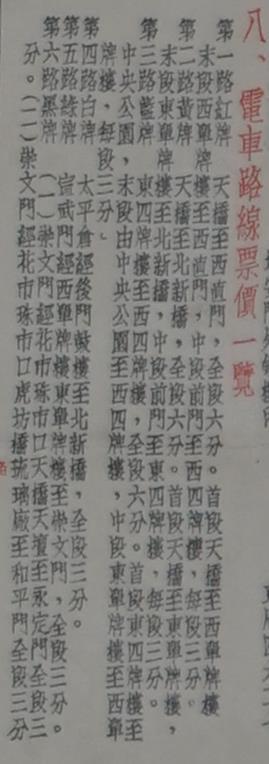 八、電車路線票價一覽
第一路紅牌　天橋至西直門，全段六分。首段天橋至西單牌樓
末段西單牌樓至西直門，中段前門至西四牌樓，每段三分。
第二路黃牌　天橋至北新橋，全段六分。首段天橋至東單牌樓，
末段東單牌樓至北新橋，中段前門至東四牌樓，每段三分。
第三路藍牌　東四牌樓至西四牌樓，全段六分。首段東四牌樓至
中央公園，末段由中央公園至西四牌樓，中段東單牌樓至西單
牌樓，每段三分。
第四路白牌　太平倉經後門鼓樓至北新橋，全段三分。
第五路綠牌　宣武門經西單牌樓東單牌樓至崇文門，全段三分。
第六路黑牌　（一）崇文門經花市珠市口天橋天壇至永定門全段三
分。（二）崇文門經花市珠市口虎坊橋琉璃廠至和平門全段三分